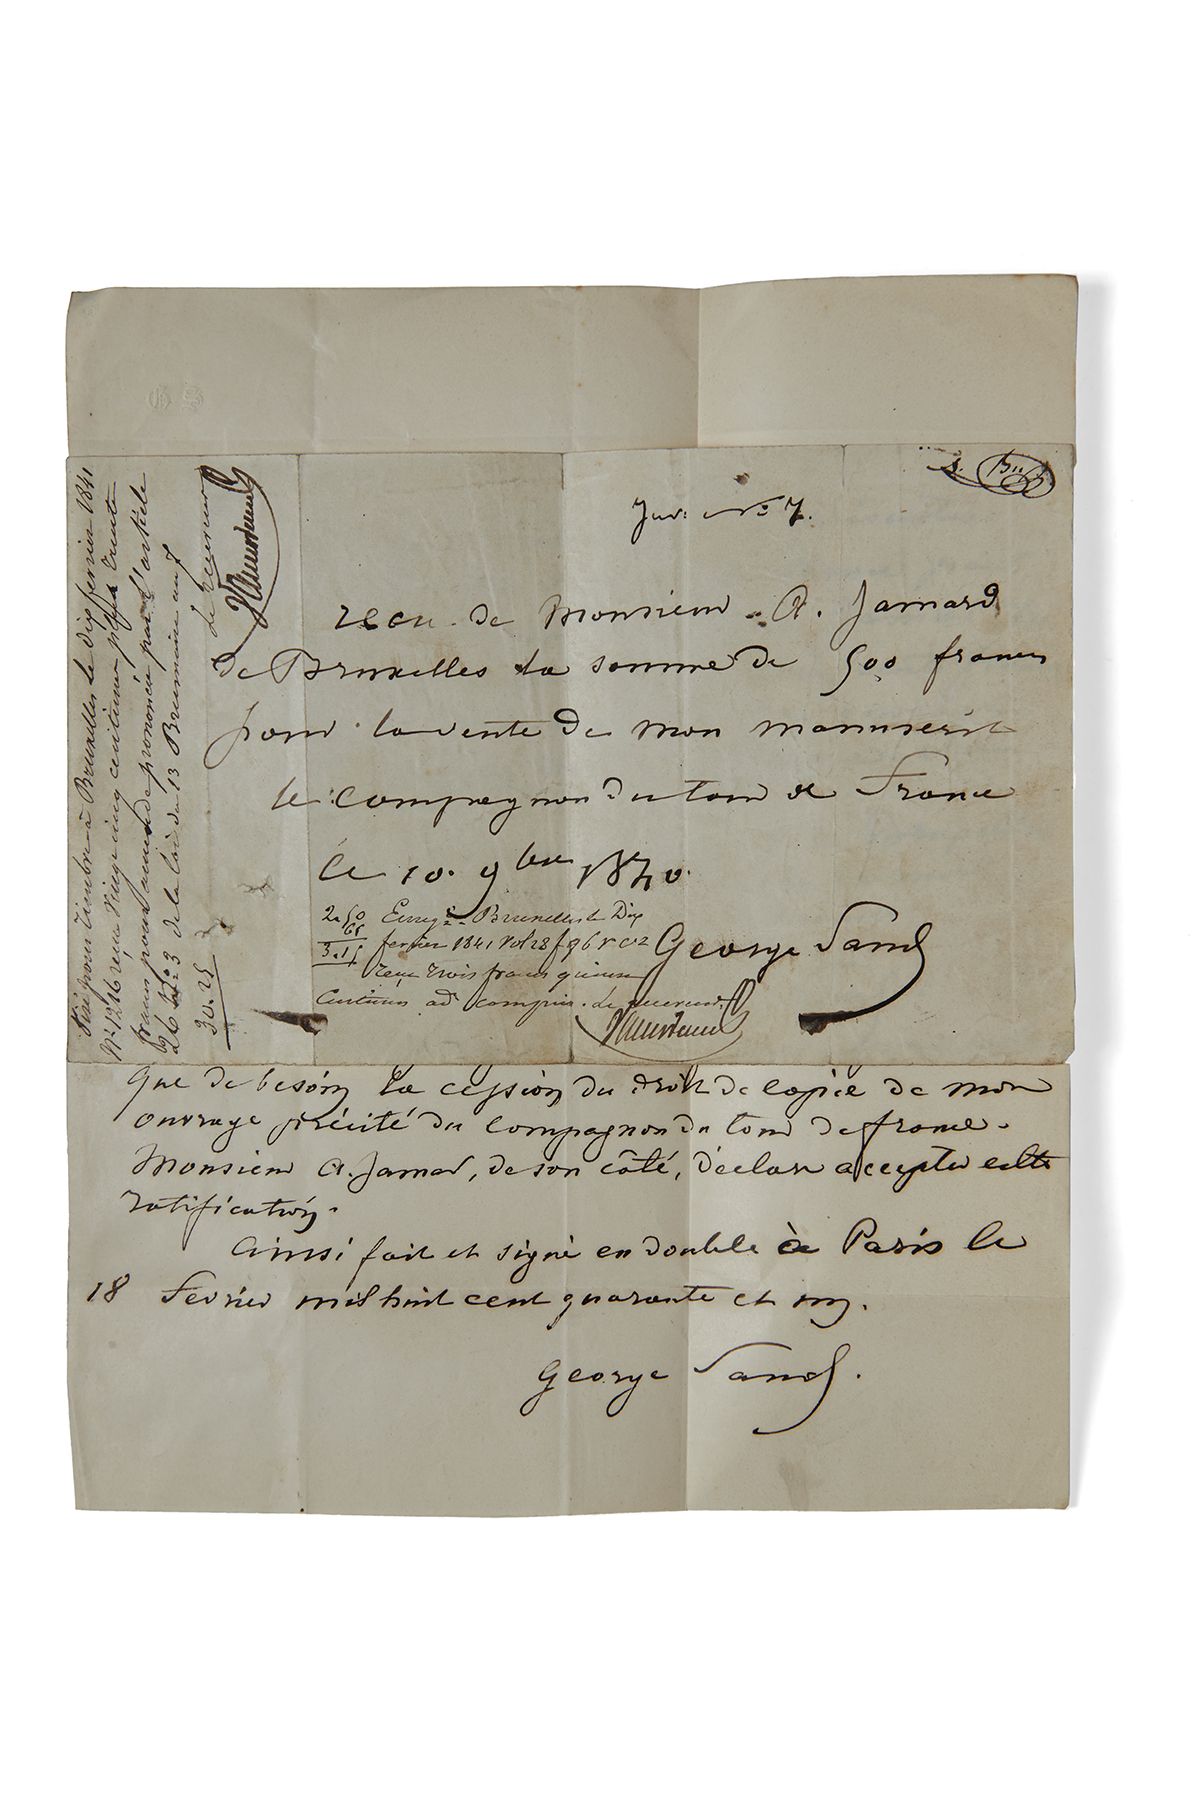 GS
Juv. No 7.
recu de Monsieur A. Jamard
de Bruxelles la somme de 500 francs
pour la vente de mon manuscrit
le compagnon du tour de France
le 10. 9bre 1840.
George Sand
2.50
65
3.15
Enreg.é à Bruxelles le Dix
fevrier 1841 vol 28 f 96 r c 2
recu trois francs quinze
Centimes ad. compris. Le receveur.
Visé pour Timbre à Bruxelles le dix fevrier 1841
No 1216 reçu vingt cinq centimes plus trente
francs pour amende prononcée par l'article
26 No 3 de la loi du 13 Brumaire an 7
30.25
Le Receveur
que de besoin la cession du droit de copie de mon
ouvrage précité du compagnon du tour de france.
Monsieur A. Jamar, de son côté, déclare accepter cette
ratification.
Ainsi fait et signé en double à Paris le
18 fevrier mil huit cent quarante et un.
George Sand.